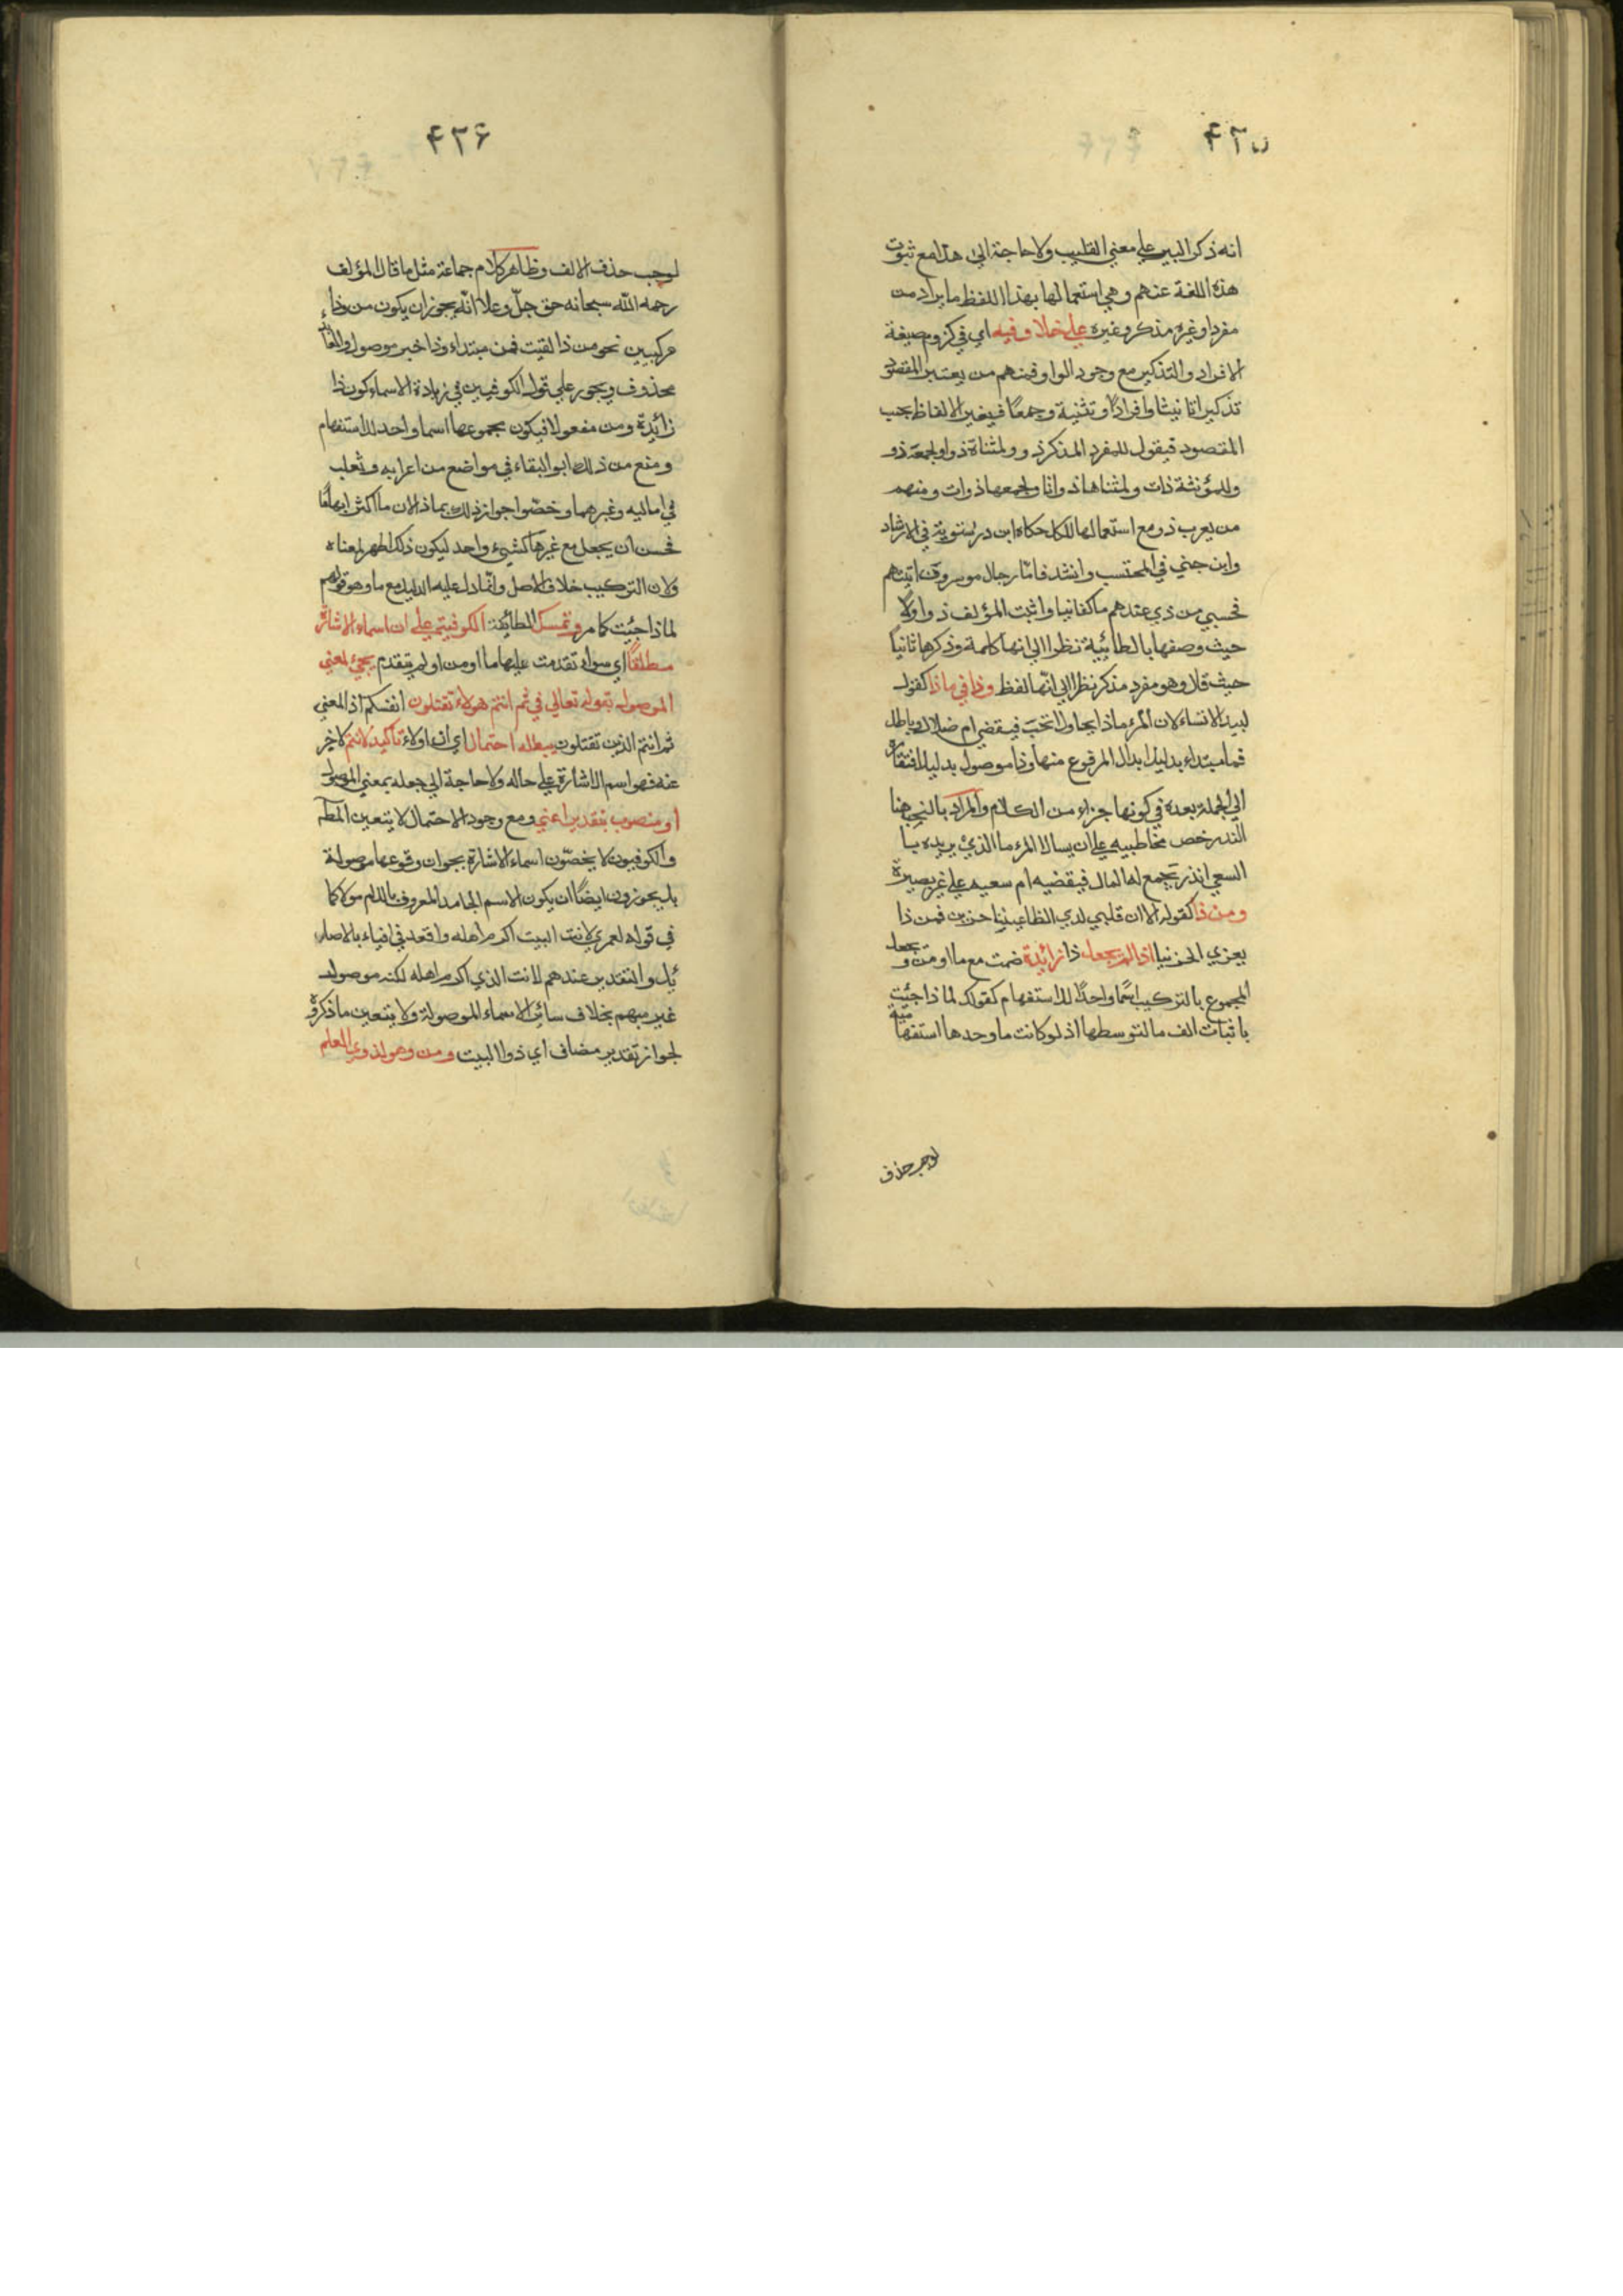 ٤٢٥
انه ذكر البير علي معني القليب ولا حاجة الي هذا مع ثبوت
هذه اللغة عنهم وهي استعمالها بهذا اللفظ ما يراد من
مفرد او غيره مذكر وغيره علي خلاف فيه اي في لزوم صيغة
الافراد والتذكير مع وجود الواو فمنهم من يعتبر المقصود
تذكيرا تانيثا وافرادًا وتثنية وجمعًا فيغير الالفاظ بحب
المقصود فيقول للمفرد المذكر ذو ولمثناة ذوا ولجمعه ذوو
وللمؤنثة ذات ولمثناها ذواتا ولجمعها ذوات ومنهم
من يعرب ذو مع استعمالها للكل حكاه ابن درستويه في الارشاد
وابن جني في المحتسب وانشد فامّا رجال موسرون اتيتهم
فحسبي من ذي عندهم ما كفانيا واثبت المؤلف ذو اولًا
حيث وصفها بالطائية نظرا الي انها كلمة وذكرها ثانيًا
حيث قال وهو مفرد مذكر نظرا الي انّها لفظ وذا في ماذا كقول
لبيد الا تسالان المرء ماذا يحاول انحَب فيقضي ام ضلال وباطل
فما مبتداء بدليل ابدال المرفوع منها وذا موصول بدليل افتقاره
الي الجملة بعده في كونها جزاء من الكلام والمراد بالنحب هنا
النذر خص مخاطبيه علي ان يسالا المرء ما الذي يريده با
السعي انذر تجمع له المال فيقضيه ام سعيه علي غير بصيرة
ومن ذا كقوله الا ان قلبي لدي الظاعنينا حزين فمن ذا
يعزي الحزنيا اذا لم يجعل ذا زائدة ضمت مع ما او من و يجعل
المجموع بالتركيب اسمًا واحدًا للاستفهام كقولك لما ذا جئت
باثبات الف ما لتوسطها اذ لو كانت ما وحدها استفها ميّة
لوجب حذف
٤٢٦
لوجب حذف الالف وظاهر كلام جماعة مثل ما قال المؤلف
رحمه اللّه سبحانه حق جلّ وعلا انّه يجوز ان يكون من وذا
مركبين نحو من ذا لقيت فمن مبتداء وذا خبر موصول والعائد
محذوف ويجوز علي قول الكوفيين في زيادة الاسماء كون ذا
زائدة ومن مفعولا فيكون مجموعها اسما واحد للاستفهام
ومنع من ذلك ابو البقاء في مواضع من اعرابه وثعلب
في اماليه وغيرهما وخصّوا جواز ذلك بماذا لان ما اكثر ابهامًا
فحسن ان يجعل مع غيرها كشيء واحد ليكون ذلك اظهر لمعناه
ولان التركيب خلاف الاصل وانّما دل عليه الدليل مع ما وهو قولهم
لماذا جئت كما مر وتمسك الطائفة الكوفيتم علي ان اسماء الاشارة
مطلقًا اي سواء تقدمت عليها ما او من او لم يتقدم يجيء بمعني
الموصول بقوله تعالي في ثم انتم هولاء تقتلون انفسكم اذ المعني
ثم انتم الذين تقتلون يبطله احتمال اي ان اولاء تاكيد لانتم كاخر
عنه فهو اسم الاشارة علي حاله ولا حاجة الي جعله بمعني الموصول
او منصوب بتقدير اعني ومع وجود الاحتمال لا يتعين المط
والكوفيون لا يخصّون اسماء الاشارة بجواز وقوعها موصولة
بل يجوزون ايضًا ان يكون الاسم الجامد المعروف باللام موصولا كما
في قوله لعمري لانت البيت اكرم اهله واقعد في افيائه بالاصا
ئل والتقدير عندهم لانت الذي اكرم اهله لكنه موصول
غير مبهم بخلاف سائر الاسماء الموصولة ولا يتعين ما ذكروه
لجواز تقدير مضاف اي ذو البيت ومن وهو لذوي العلم